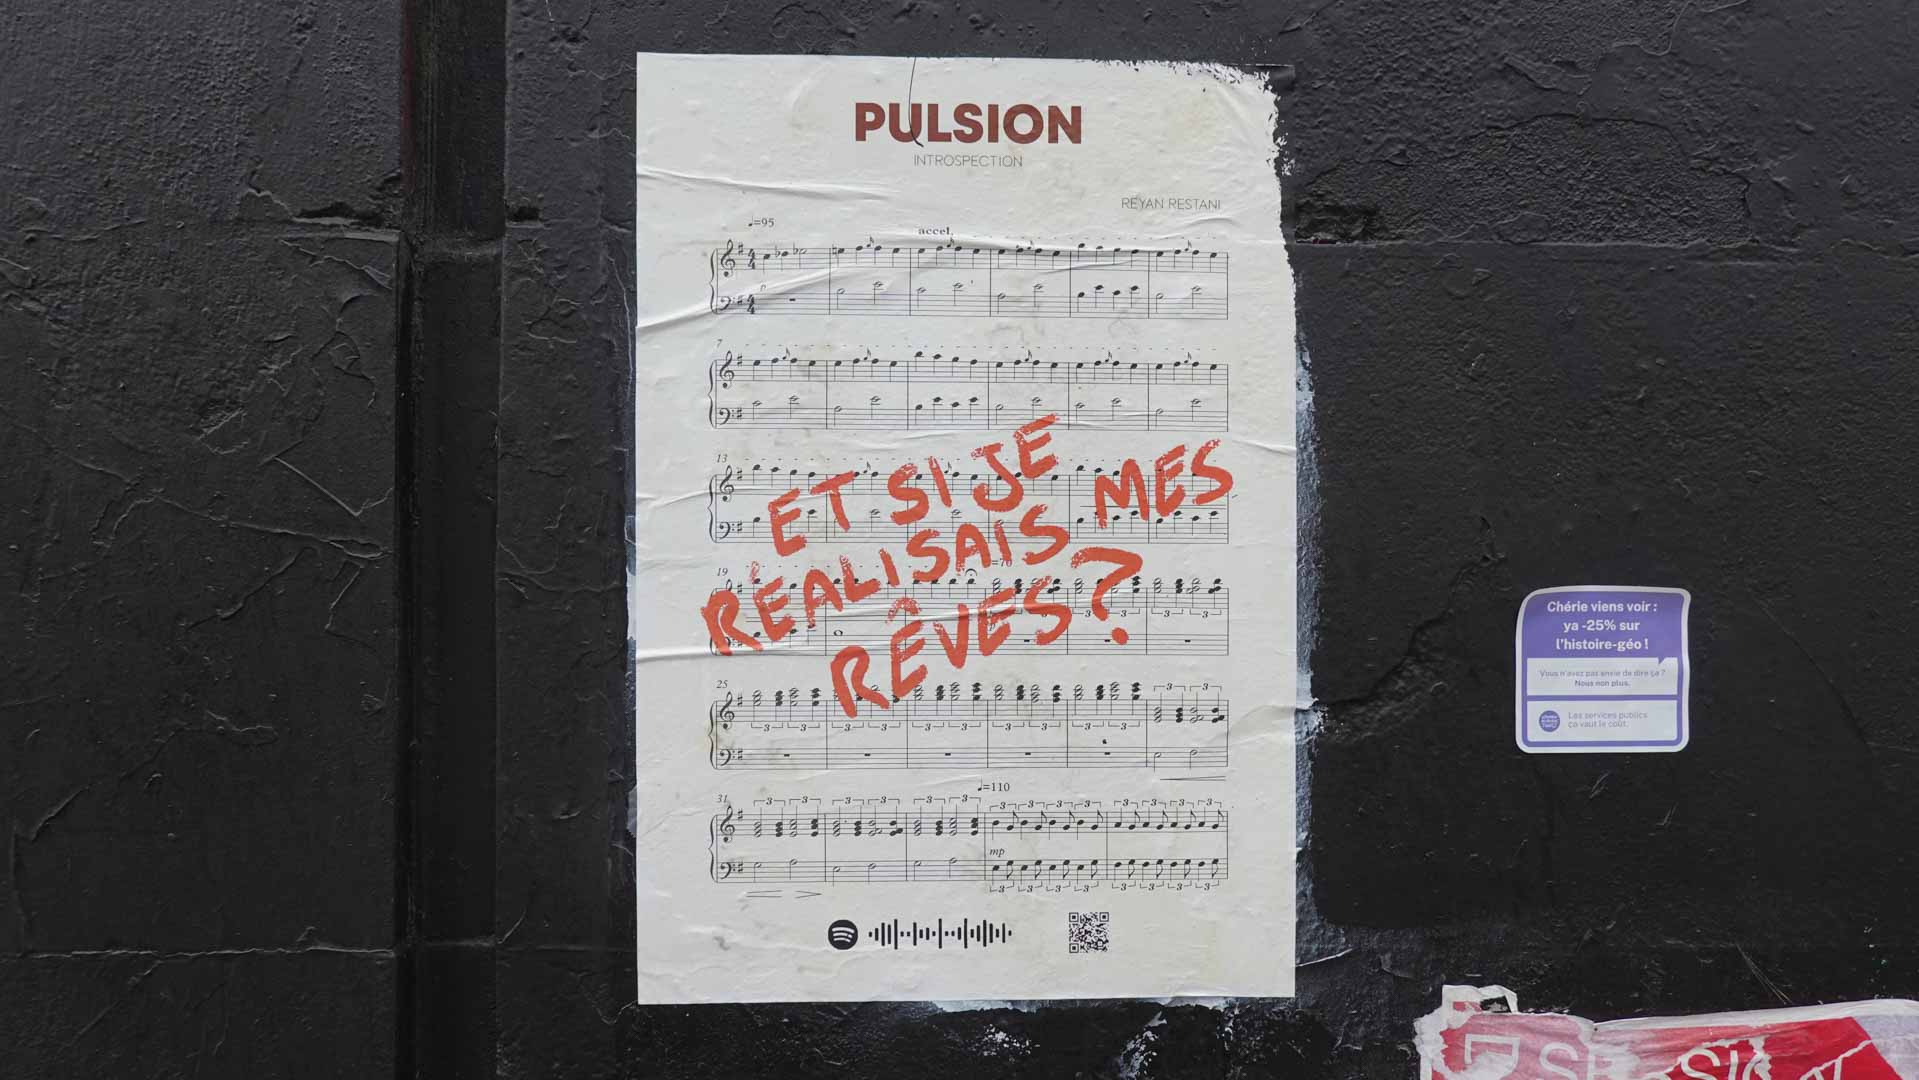 PULSION
INTROSPECTION
REYAN RESTANI
♩=95
accel.
7
13
19
=70
25
31
♩=110
mp
ET SI JE
RÉALISAIS MES
RÊVES?
Chérie viens voir :
ya -25% sur
l'histoire-géo !
Vous n'avez pas envie de dire ça ?
Nous non plus.
Les services publics
ça vaut le coût.